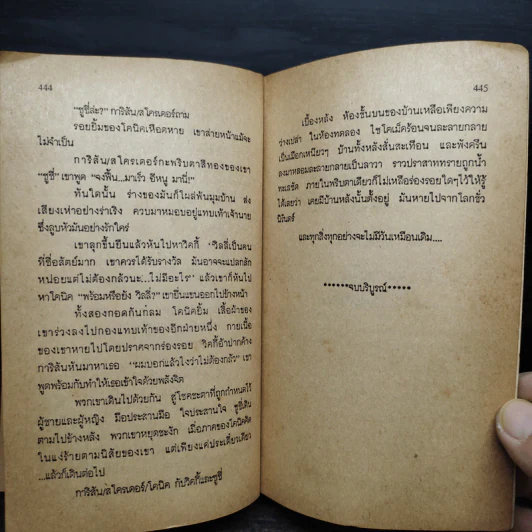 444
"ซูซี่ล่ะ?" การิสัน/สไครเดอร์ถาม
รอยยิ้มของโคนิคเหือดหาย เขาส่ายหน้าแม้จะ
ไม่จำเป็น
การิสัน/สไครเดอร์กะพริบตาสีทองของเขา
"ซูซี่" เขาพูด "จงฟื้น...มาเร็ว อีหนู มานี่!"
ทันใดนั้น ร่างของมันก็โผล่พ้นมุมบ้าน ส่ง
เสียงเห่าอย่างร่าเริง ควบมาหมอบอยู่แทบเท้าเจ้านาย
ซึ่งลูบหัวมันอย่างรักใคร่
เขาลุกขึ้นยืนแล้วหันไปหาวิคกี้ "วิลลี่เป็นคน
ที่ซื่อสัตย์มาก เขาควรได้รับรางวัล มันอาจจะแปลกสัก
หน่อยแต่ไม่ต้องกลัวนะ...ไม่มีอะไร" แล้วเขาก็หันไป
หาโคนิค "พร้อมหรือยัง วิลลี่?" เขายื่นแขนออกไปข้างหน้า
ทั้งสองกอดกันกลม โคนิคยิ้ม เสื้อผ้าของ
เขาร่วงลงไปกองแทบเท้าของอีกฝ่ายหนึ่ง กายเนื้อ
ของเขาหายไปโดยปราศจากร่องรอย วิคกี้อ้าปากค้าง
การิสันหันมาหาเธอ "ผมบอกแล้วไงว่าไม่ต้องกลัว" เขา
พูดพร้อมกับทำให้เธอเข้าใจด้วยพลังจิต
พวกเขาเดินไปด้วยกัน สู่โชคชะตาที่ถูกกำหนดไว้
ผู้ชายและผู้หญิง มือประสานมือ ใจประสานใจ ซูซี่เดิน
ตามไปข้างหลัง พวกเขาหยุดชะงัก เมื่อภาคของโคนิคคิด
ในแง่ร้ายตามนิสัยของเขา แต่เพียงแค่ประเดี๋ยวเดียว
...แล้วก็เดินต่อไป
การิสัน/สไครเดอร์/โคนิค กับวิคกี้และซูซี่
445
เบื้องหลัง ห้องชั้นบนของบ้านเหลือเพียงความ
ว่างเปล่า ในห้องทดลอง ไซโคเม็คร้อนจนละลายกลาย
เป็นเมือกเหนียวๆ บ้านทั้งหลังสั่นสะเทือน และพังครืน
ลงมาหลอมละลายกลายเป็นลาวา ราวปราสาททรายถูกน้ำ
ทะเลซัด ภายในพริบตาเดียวก็ไม่เหลือร่องรอยใดๆไว้ให้รู้
ได้เลยว่า เคยมีบ้านหลังนั้นตั้งอยู่ มันหายไปจากโลกชั่ว
นิรันดร์
และทุกสิ่งทุกอย่างจะไม่มีวันเหมือนเดิม....
******จบบริบูรณ์*****